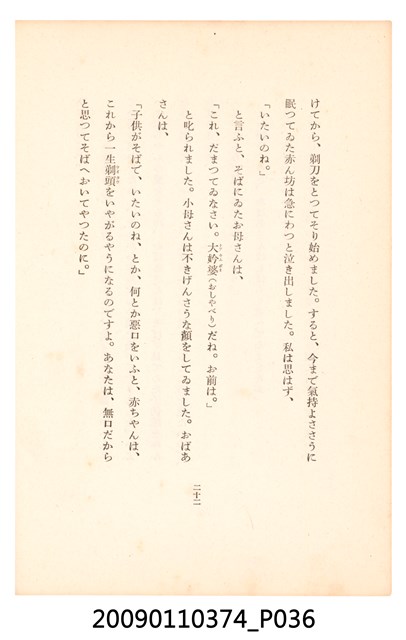 けてから、剃刀をとつてそり始めました。すると、今まで氣持よささうに
眠つてゐた赤ん坊は急にわつと泣き出しました。私は思はず、
「いたいのね。」
と言ふと、そばにゐたお母さんは、
「これ、だまつてゐなさい。大妗婆(おしやべり)だね。お前は。」
と叱られました。小母さんは不きげんさうな顏をしてゐました。おばあ
さんは、
「子供がそばで、いたいのね、とか、何とか惡口をいふと、赤ちやんは、
これから一生剃頭をいやがるやうになるのですよ。あなたは、無口だから
と思つてそばへおいてやつたのに。」
二十二
20090110374_P036